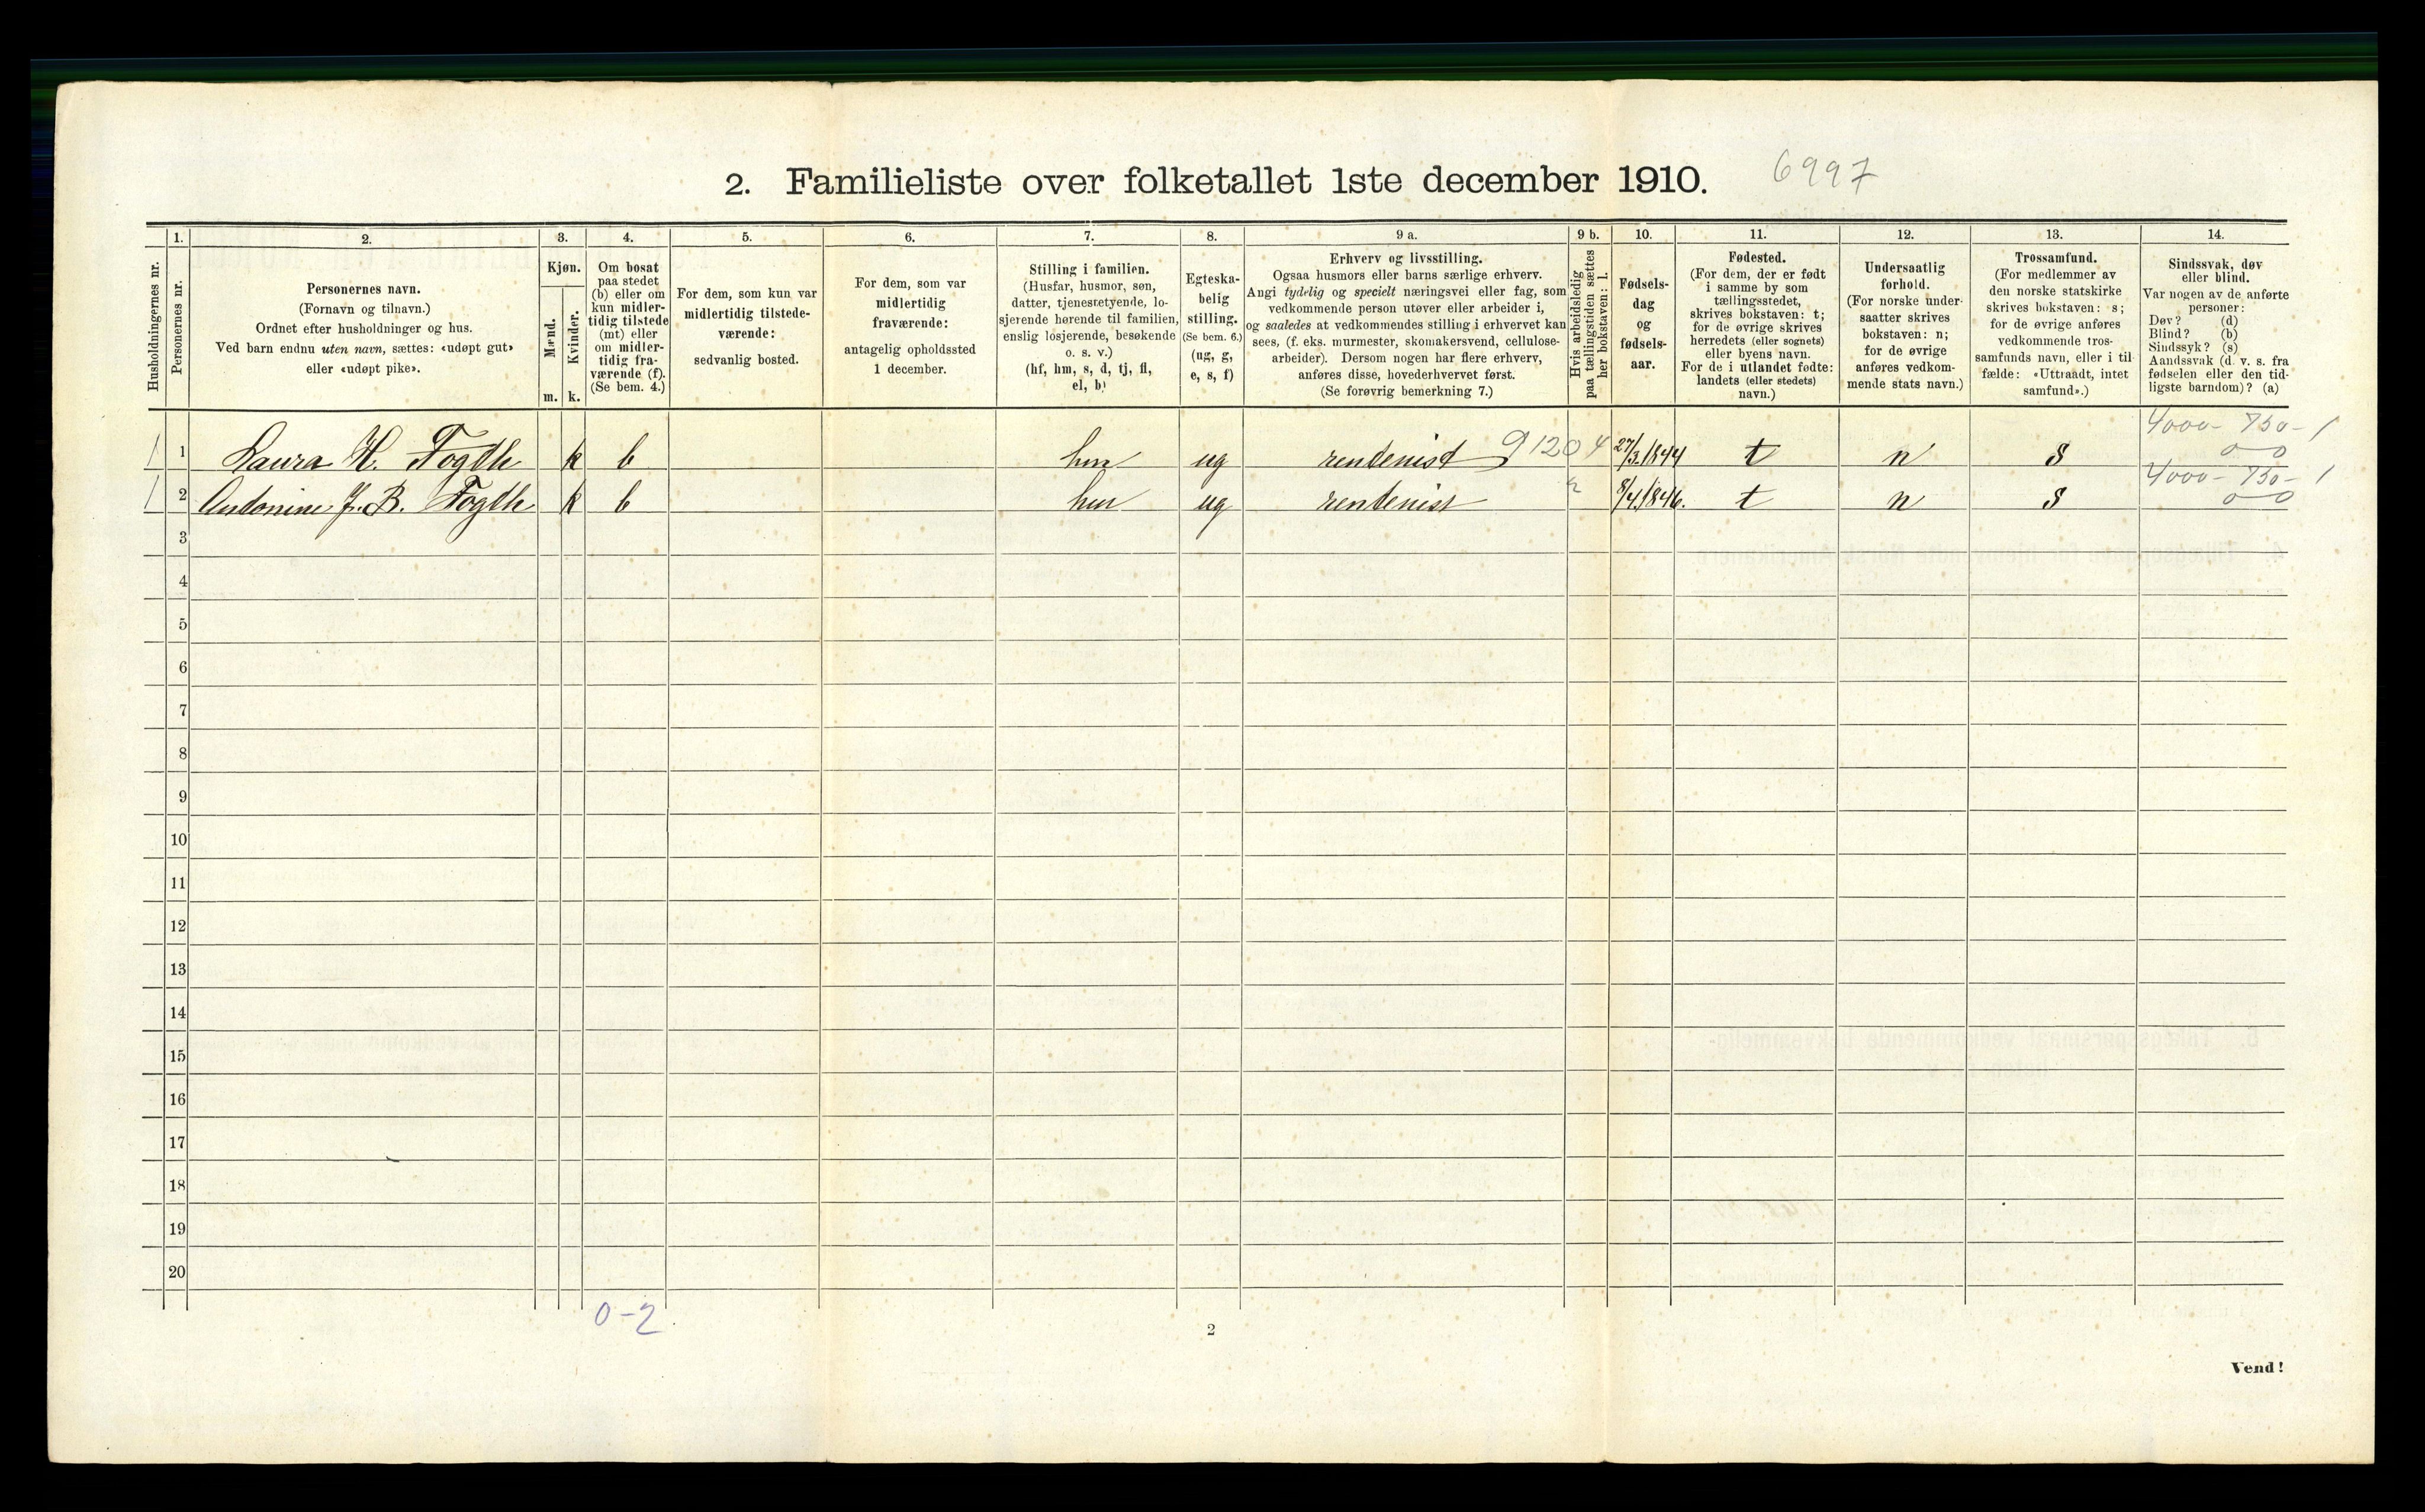 2. Familieliste over folketallet 1ste december 1910. 6997
Husholdningernes nr.
1.
Personernes nr.
2.
Personernes navn.
(Fornavn og tilnavn.)
Ordnet efter husholdninger og hus.
Ved barn endnu uten navn, sættes: «udøpt gut»
eller «udøpt pike».
3.
Kjøn.
Mænd.
Kvinder.
m. k.
4.
Om bosat
paa stedet
(b) eller om
kun midler-
tidig tilstede
(mt) eller
om midler-
tidig fra-
værende (f).
(Se bem. 4.)
5.
For dem, som kun var
midlertidig tilstede-
værende:
sedvanlig bosted.
6.
For dem, som var
midlertidig
fraværende:
antagelig opholdssted
1 december.
7.
Stilling i familien.
(Husfar, husmor, søn,
datter, tjenestetyende, lo-
sjerende hørende til familien,
enslig losjerende, besøkende
o. s. v.)
(hf, hm, s, d, tj, fl,
el, b)
8.
Egteska-
belig
stilling.
(Se bem. 6.)
(ug, g,
e, s, f)
9 a.
Erhverv og livsstilling.
Ogsaa husmors eller barns særlige erhverv.
Angi tydelig og specielt næringsvei eller fag, som
vedkommende person utøver eller arbeider i,
og saaledes at vedkommendes stilling i erhvervet kan
sees, (f. eks. murmester, skomakersvend, cellulose-
arbeider). Dersom nogen har flere erhverv,
anføres disse, hovederhvervet først.
(Se forøvrig bemerkning 7.)
9 b.
Hvis arbeidsledig
paa tællingstiden sættes
her bokstaven: l.
10.
Fødsels-
dag
og
fødsels-
aar.
11.
Fødested.
(For dem, der er født
i samme by som
tællingsstedet,
skrives bokstaven: t;
for de øvrige skrives
herredets (eller sognets)
eller byens navn.
For de i utlandet fødte:
landets (eller stedets)
navn.)
12.
Undersaatlig
forhold.
(For norske under-
saatter skrives
bokstaven: n;
for de øvrige
anføres vedkom-
mende stats navn.)
13.
Trossamfund.
(For medlemmer av
den norske statskirke
skrives bokstaven: s;
for de øvrige anføres
vedkommende tros-
samfunds navn, eller i til-
fælde: «Uttraadt, intet
samfund».)
14.
Sindssvak, døv
eller blind.
Var nogen av de anførte
personer:
Døv? (d)
Blind? (b)
Sindssyk? (s)
Aandssvak (d. v. s. fra
fødselen eller den tid-
ligste barndom)? (a)
4000- 750- 1
1 1 Laura H. Fogth k b hm ug rentenist 9120 4 27/3 1844 t n s 0 0
4000- 750- 1
1 2 Antonine J. B. Fogth k b hm ug rentenist 2 8/4 1846. t n s 0 0
3
4
5
6
7
8
9
10
11
12
13
14
15
16
17
18
19
20
0-2
2
Vend!